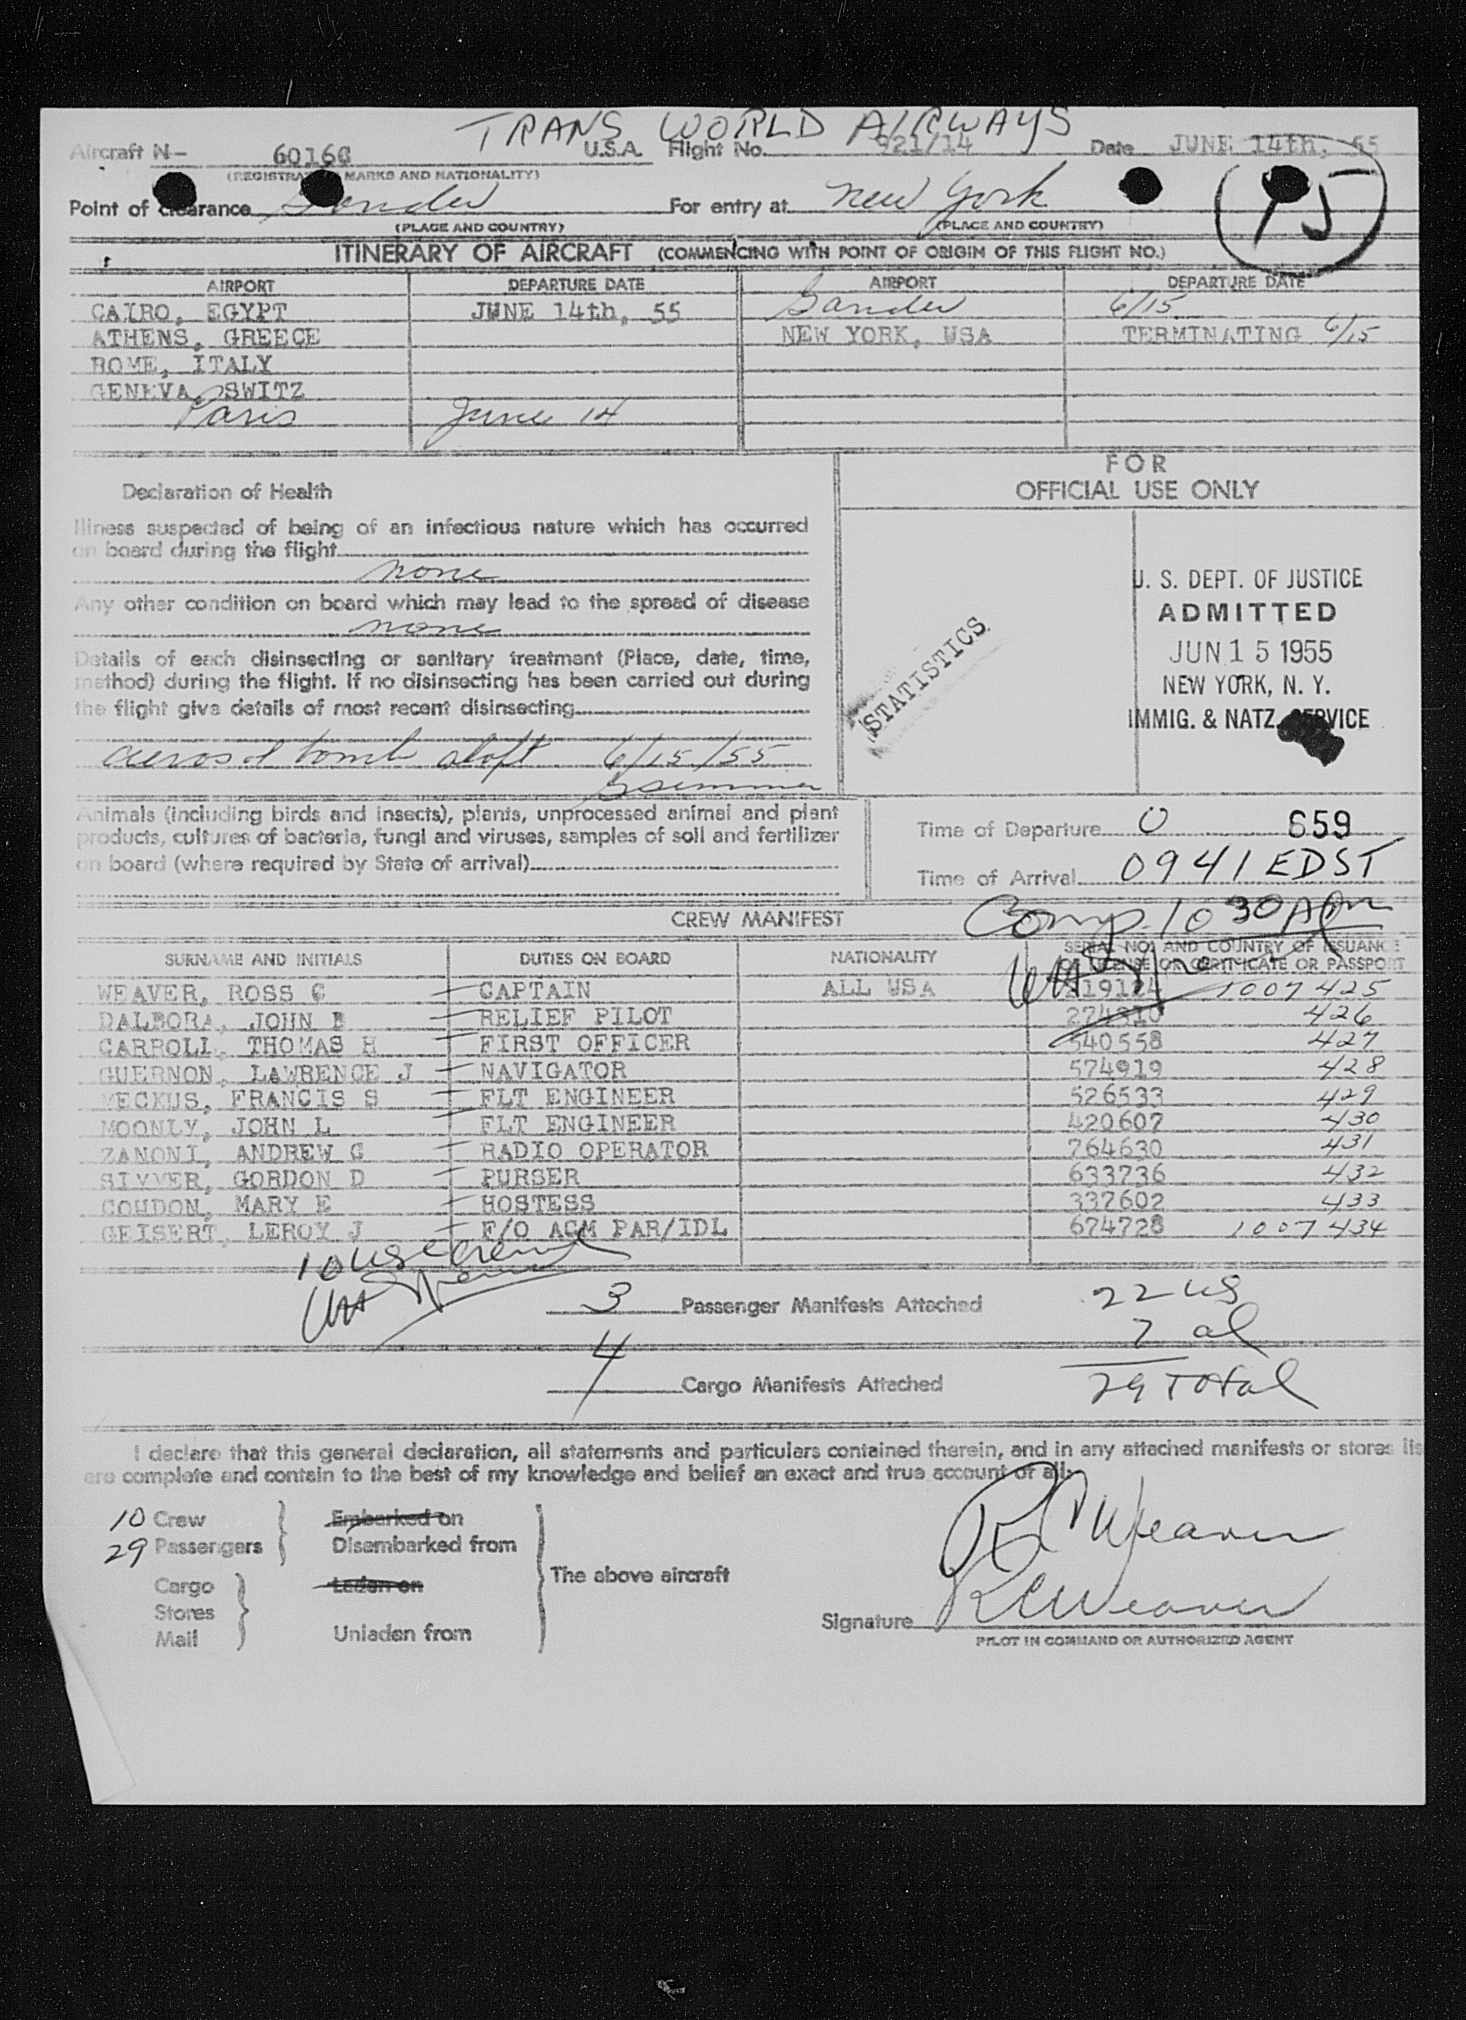 TRANS WORLD AIRWAYS
Aircraft N- 6016C U.S.A. Flight No. 921/14 Date JUNE 14th, 55
(REGISTRATION MARKS AND NATIONALITY)
Point of Clearance Gander For entry at New York 15
(PLACE AND COUNTRY) (PLACE AND COUNTRY)
ITINERARY OF AIRCRAFT (COMMENCING WITH POINT OF ORIGIN OF THIS FLIGHT NO.)
AIRPORT DEPARTURE DATE AIRPORT DEPARTURE DATE
CAIRO, EGYPT JUNE 14th, 55 Gander 6/15
ATHENS, GREECE NEW YORK, USA TERMINATING 6/15
ROME, ITALY
GENEVA, SWITZ
Paris June 14
FOR
OFFICIAL USE ONLY
Declaration of Health
Illness suspected of being of an infectious nature which has occurred
on board during the flight
none
Any other condition on board which may lead to the spread of disease
none
Details of each disinsecting or sanitary treatment (Place, date, time,
method) during the flight. If no disinsecting has been carried out during
the flight give details of most recent disinsecting
aerosol bomb aloft 6/15/55
STATISTICS
U. S. DEPT. OF JUSTICE
ADMITTED
JUN 15 1955
NEW YORK, N. Y.
IMMIG. & NATZ. SERVICE
Animals (including birds and insects), plants, unprocessed animal and plant
products, cultures of bacteria, fungi and viruses, samples of soil and fertilizer
on board (where required by State of arrival)
Time of Departure 0 659
Time of Arrival 0941 EDST
Comp. 10 30 AM
CREW MANIFEST
SURNAME AND INITIALS DUTIES ON BOARD NATIONALITY SERIAL NO. AND COUNTRY OF ISSUANCE
OF LICENSE OR CERTIFICATE OR PASSPORT
WEAVER, ROSS C CAPTAIN ALL USA 1007425
DALBORA, JOHN B RELIEF PILOT 274810 426
CARROLL, THOMAS H FIRST OFFICER 540558 427
GUERNON, LAWRENCE J NAVIGATOR 574919 428
MECKUS, FRANCIS S FLT ENGINEER 526533 429
MOONLY, JOHN L FLT ENGINEER 420607 430
ZANONI, ANDREW G RADIO OPERATOR 764630 431
GORDON D PURSER 633736 432
MARY E HOSTESS 337602 433
GEISERT, LEROY J F/O ACM PAR/IDL 674728 1007434
10 US Crew
3 Passenger Manifests Attached 22 US
7 al
4 Cargo Manifests Attached 29 Total
I declare that this general declaration, all statements and particulars contained therein, and in any attached manifests or stores lis
are complete and contain to the best of my knowledge and belief an exact and true account of all.
10 Crew Embarked on
29 Passengers Disembarked from
The above aircraft
Cargo Laden on
Stores
Mail Unladen from
R C Weaver
Signature R C Weaver
PILOT IN COMMAND OR AUTHORIZED AGENT